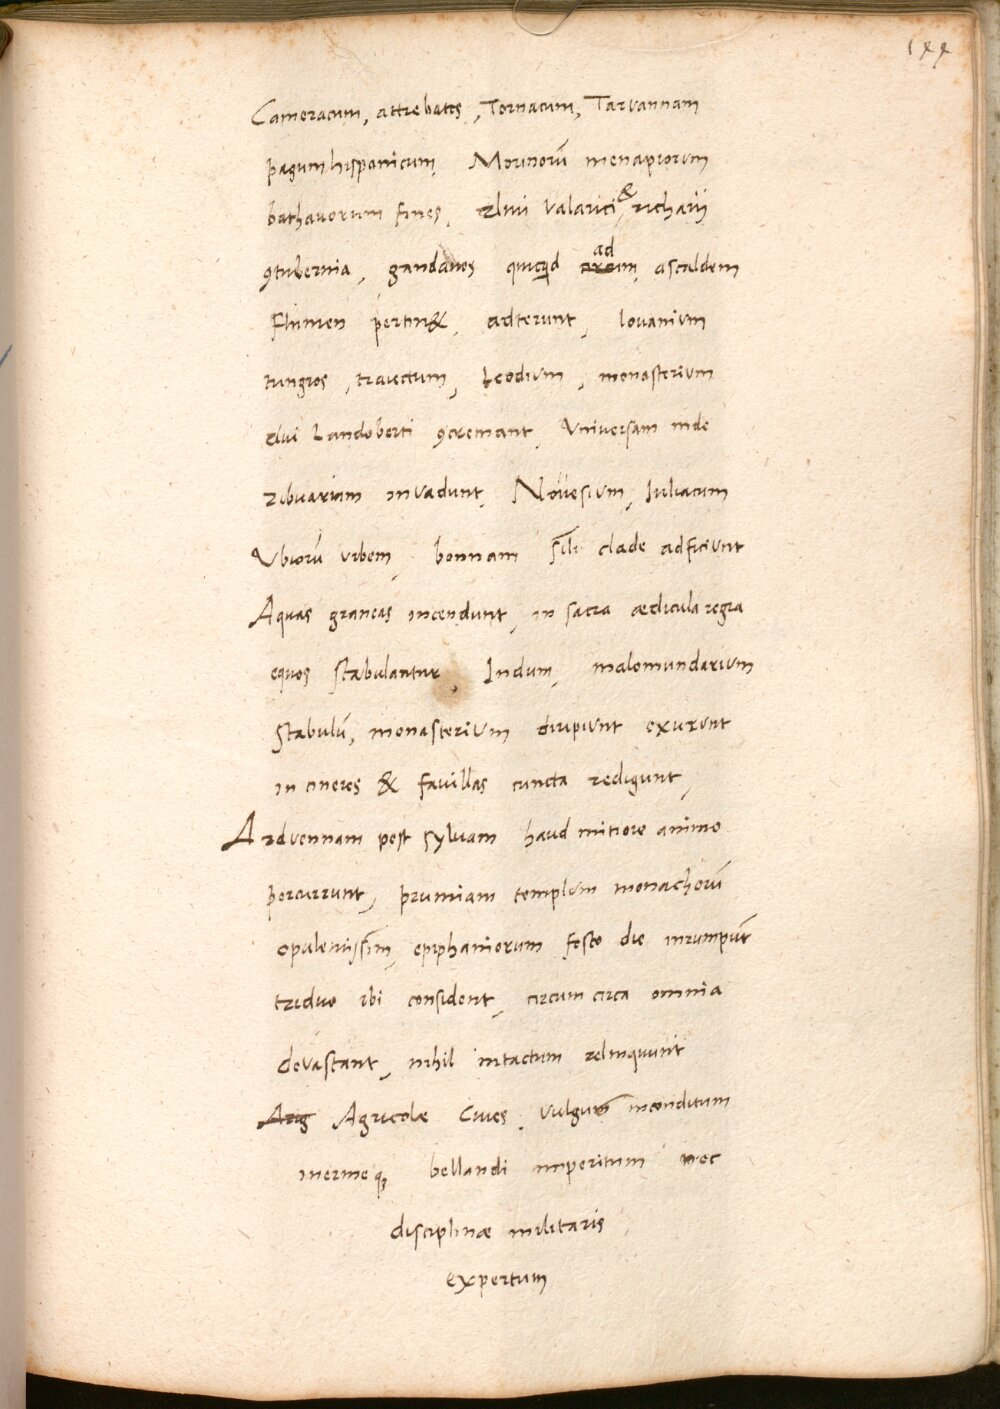 188
Cameracum, attrebates, Tornacum, Tarvannam
pagum hispanicum, Morinorū menapiorum
bathavorum fines, divi Valarici, & richarij
ꝯtubernia, gandavos quicqd ad ascaldem
Flumen pertin&, adterunt, lovanium
tungros, traiectum, Leodium, monasterium
divi Landoberti ꝯcremant, Universam inde
ribuariam invadunt, Novesium, Iuliacum
Ubiorū urbem, bonnam sīli clade adficiunt
Aquas graneas incendunt, in sacra aedicula regia
equos stabulantur, Indum, malomundarium
Stabulū, monasterium diripiunt exurunt
in cineres & favillas cuncta redigunt,
Arduennam post sylvam haud mitiore animo
percurrunt, prumiam templum monachorū
opulentissīm, epiphaniorum festo die inrumpūt
triduo ibi consident, circum circa omnia
devastant, nihil intactum relinquunt
Agricolae Cives, vulgus inconditum
inermeq, bellandi imperitum nec
disciplinae militaris
expertum